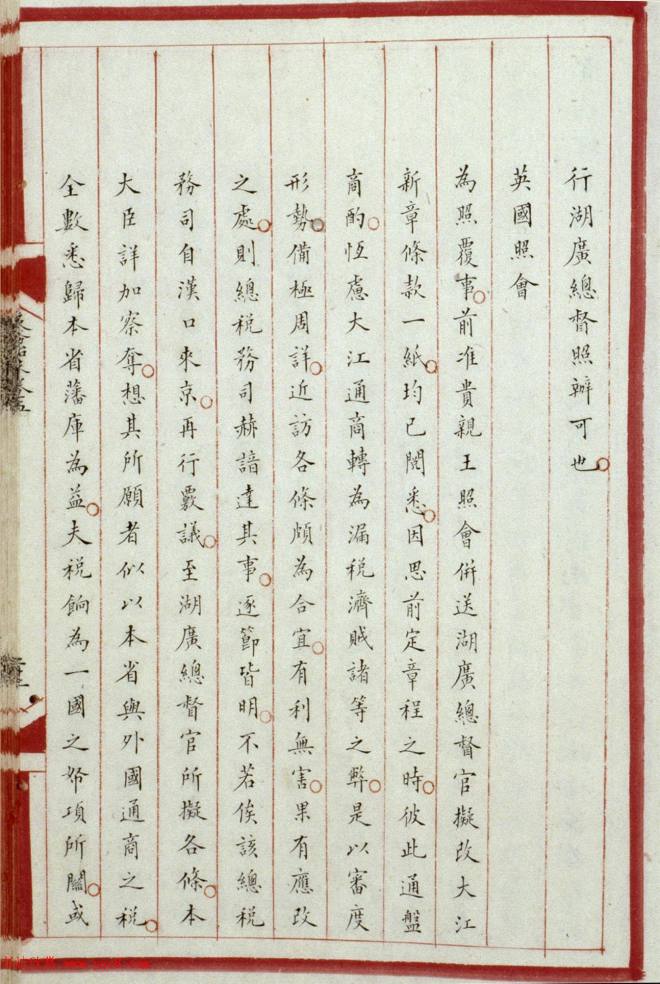 行湖廣總督照辦可也
英國照會
為照覆事前准貴親王照會併送湖廣總督官擬改大江
新章條款一紙均已閱悉因思前定章程之時彼此通盤
商酌恆慮大江通商轉為漏稅濟賊諸等之弊是以審度
形勢備極周詳近訪各條頗為合宜有利無害果有應改
之處則總稅務司赫諳達其事逐節皆明不若俟該總稅
務司自漢口來京再行覈議至湖廣總督官所擬各條本
大臣詳加察奪想其所願者似以本省與外國通商之稅
全數悉歸本省藩庫為益夫稅餉為一國之帑項所關或